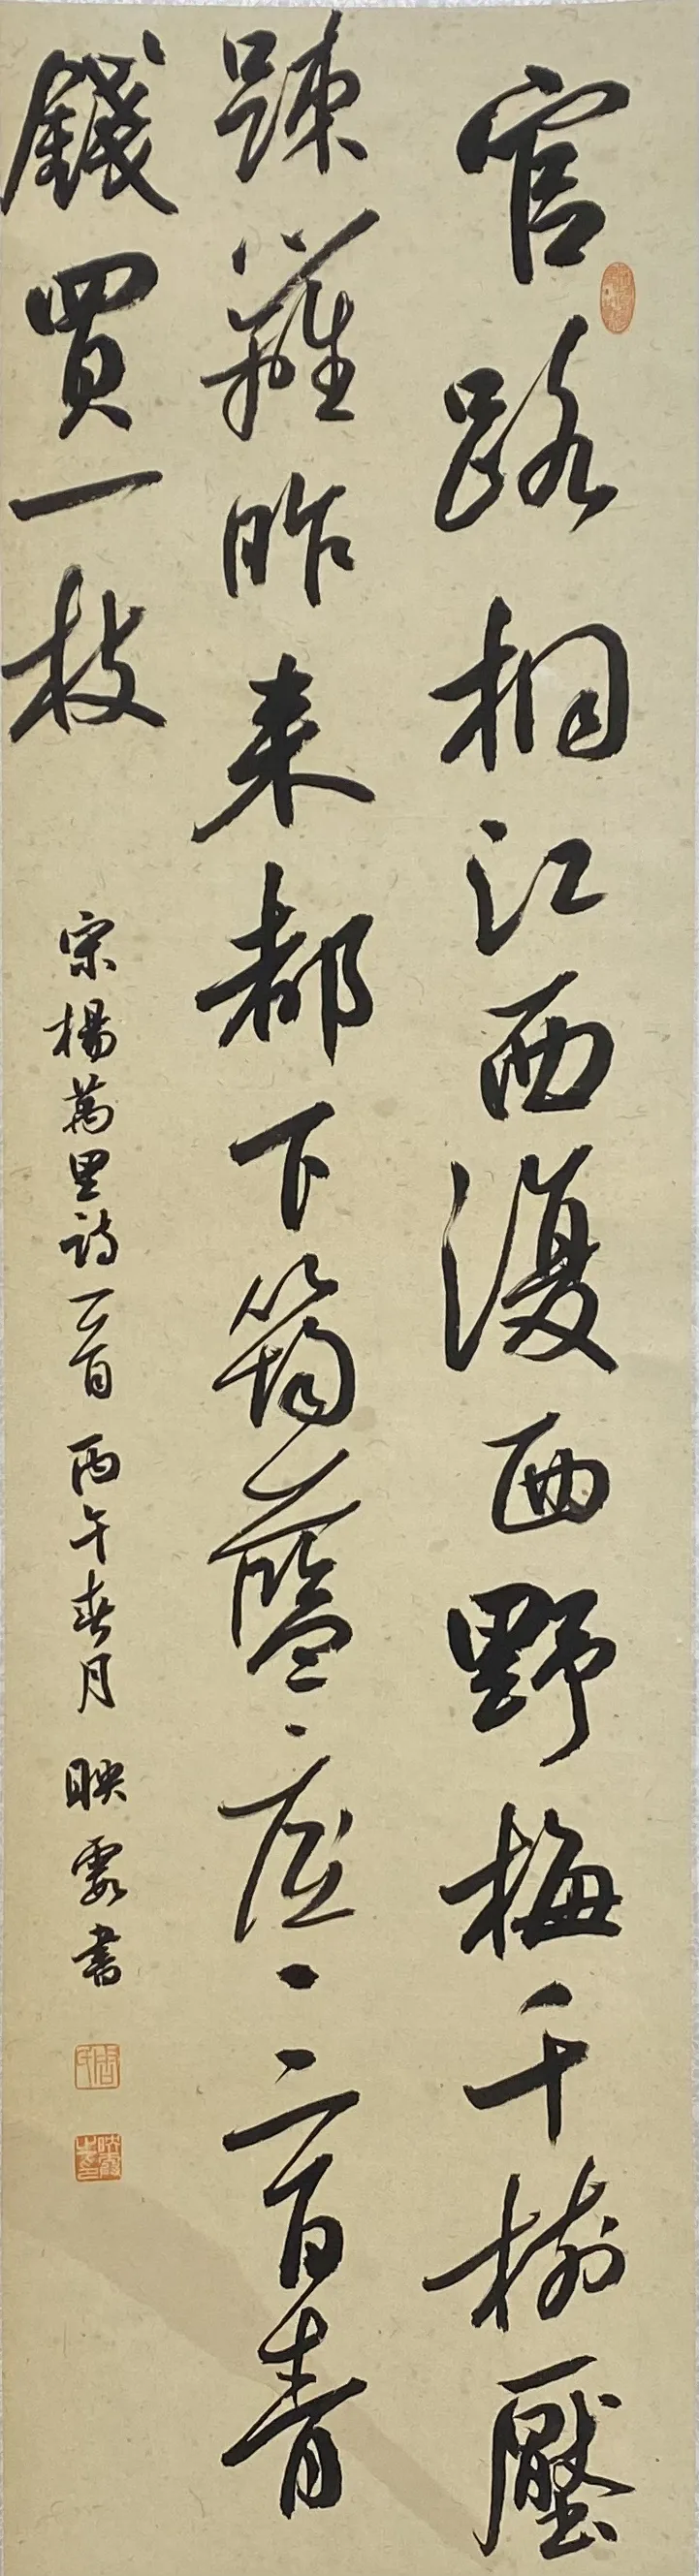 官路桐江西復西野梅千樹壓
踈籬昨来都下筠籃底三百青
錢買一枝
宋楊萬里詩一首 丙午春月 映霞書